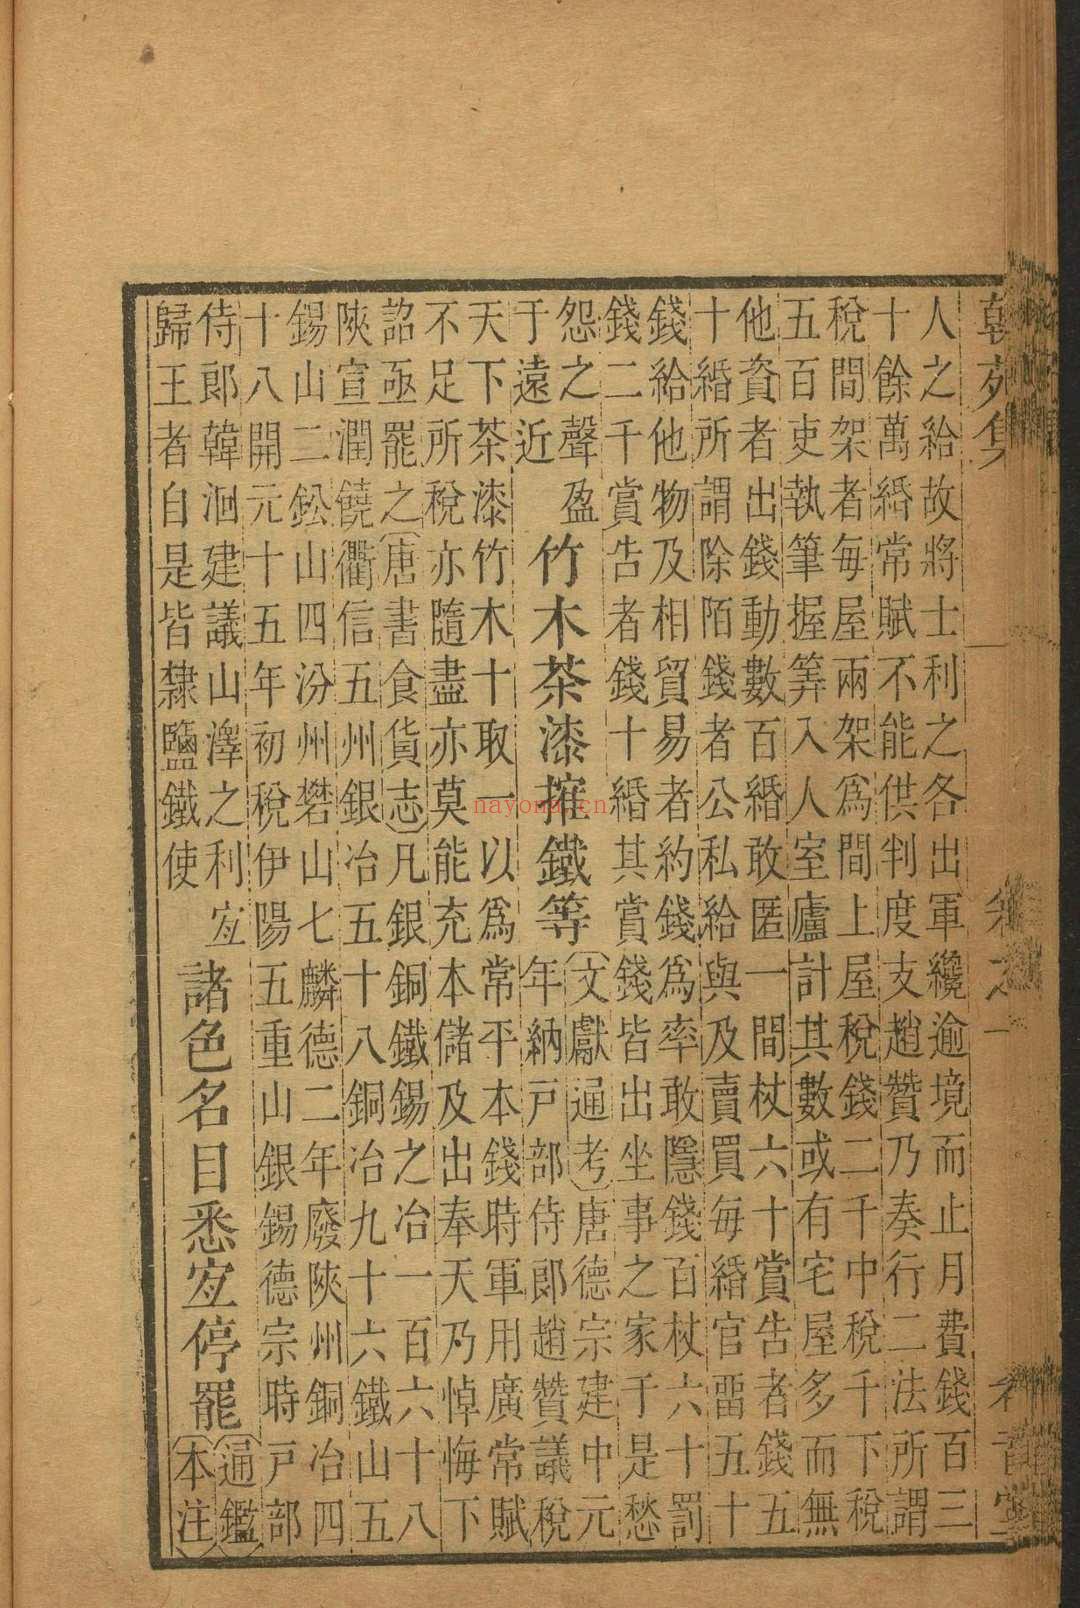 翰苑集
卷之一
人之給故將士利之各出軍纔逾境而止月費錢百三
十餘萬緡常賦不能供判度支趙贊乃奏行二法所謂
稅間架者每屋兩架爲間上屋稅錢二千中稅千下稅
五百吏執筆握筭入人室廬計其數或有宅屋多而無
他資者出錢動數百緡敢匿一間杖六十賞告者錢五
十緡所謂除陌錢者公私給與及賣買每緡官畱五十
錢給他物及相貿易者約錢爲率敢隱錢百杖六十罰
錢二千賞告者錢十緡其賞錢皆出坐事之家于是愁
怨之聲盈
于遠近
竹木茶漆搉鐵等
(文獻通考)唐德宗建中元
年納戶部侍郎趙贊議稅
天下茶漆竹木十取一以爲常平本錢時軍用廣常賦
不足所稅亦隨盡亦莫能充本儲及出奉天乃悼悔下
詔亟罷之(唐書食貨志)凡銀銅鐵錫之冶一百六十八
陝宣潤饒衢信五州銀冶五十八銅冶九十六鐵山五
錫山二鈆山四汾州礬山七麟德二年廢陝州銅冶四
十八開元十五年初稅伊陽五重山銀錫德宗時戶部
侍郎韓洄建議山澤之利宐
歸王者自是皆隸鹽鐵使
諸色名目悉宐停罷
(通鑑)
(本注)
nayona.cn